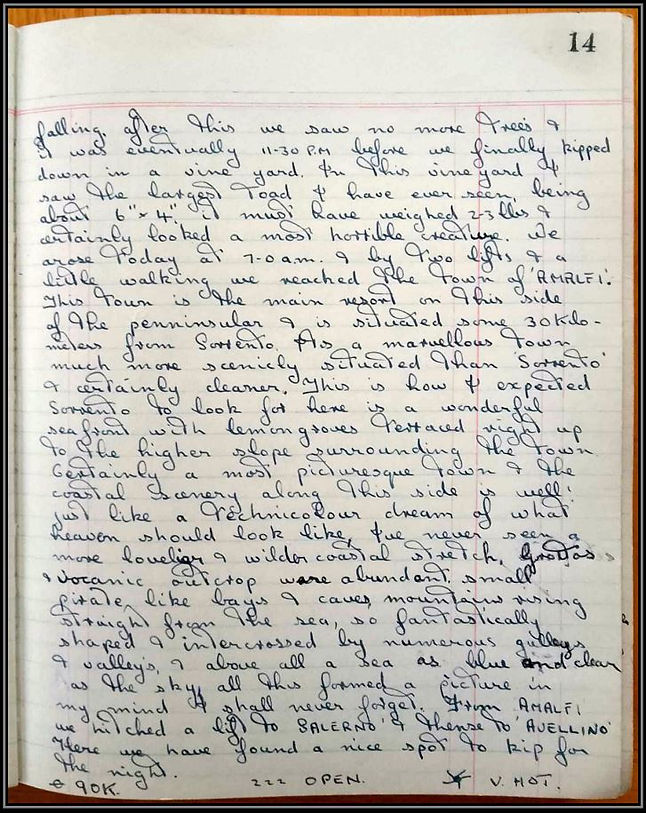 14
falling. after this we saw no more trees &
It was eventually 11-30 P.M before we finally kipped
down in a vine yard. In this vineyard I
saw the largest toad I have ever seen, being
about 6" x 4". it must have weighed 2-3 lbs &
certainly looked a most horrible creature. We
arose today at 7-0 a.m. & by two lifts & a
little walking we reached the town of 'AMALFI'.
This town is the main resort on this side
of the penninsular & is situated some 30 Kilo-
meters from Sorrento. Its a marvellous town
much more scenicly situated than 'Sorrento'
& certainly cleaner. This is how I expected
Sorrento to look for here is a wonderful
seafront with lemongroves terraced right up
to the higher slope surrounding the town
Certainly a most picturesque town & the
coastal scenery along this side is well!
just like a Technicolour dream of what
heaven should look like, I've never seen a
more lovelier & wilder coastal stretch, grottos
& volcanic outcrop were abundant. small
pirate, like bays & caves, mountains rising
straight from the sea, so fantastically
shaped & intercrossed by numerous gulleys
& valleys, & above all a sea as blue and clear
as the sky, all this formed a picture in
my mind I shall never forget. From AMALFI
we hitched a lift to 'SALERNO' & thense to 'AVELLINO'
Here we have found a nice spot to kip for
the night.
90K. 222 OPEN. V. HOT.